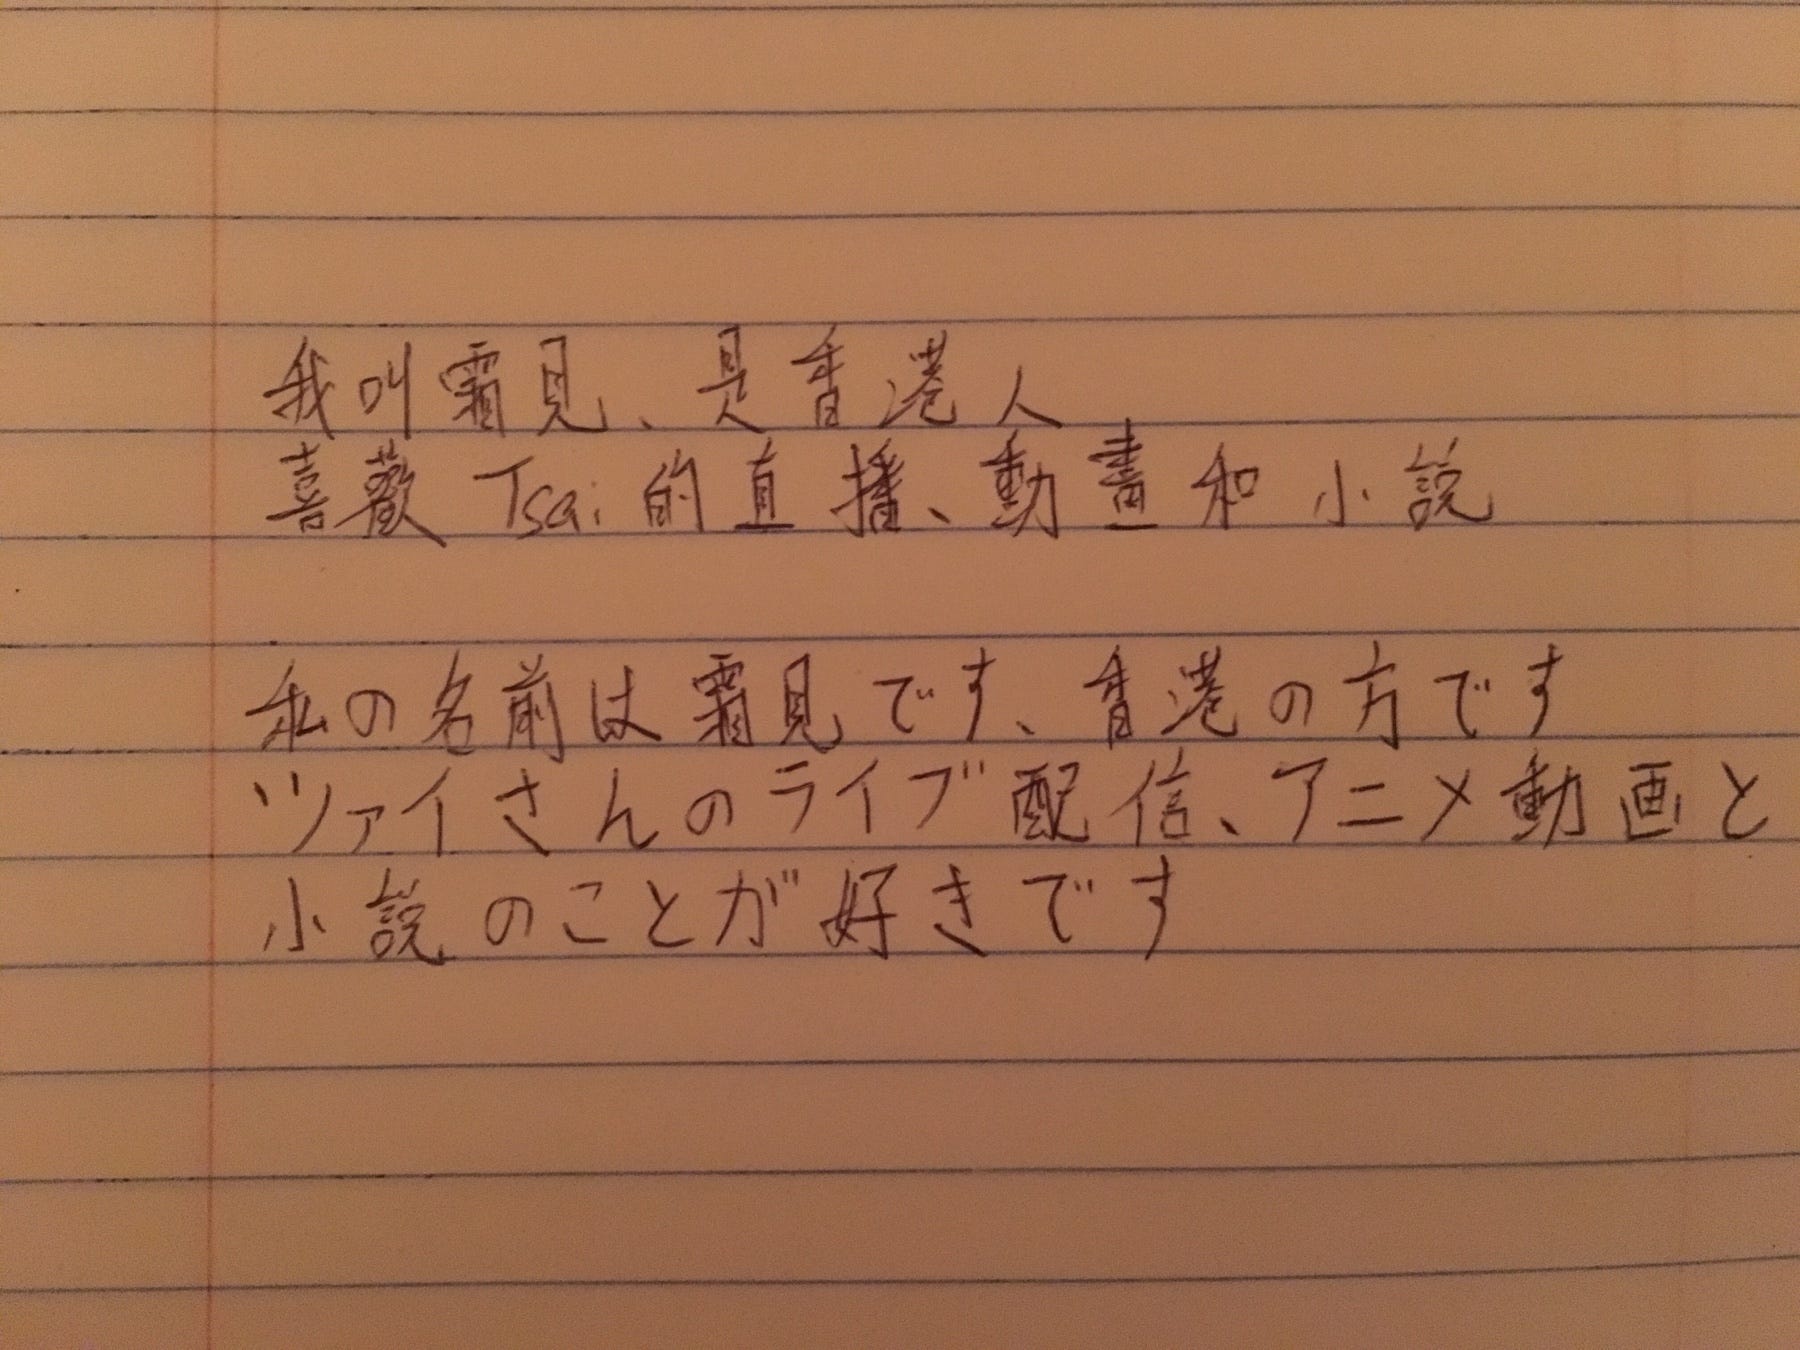 我叫霜見、是香港人
喜歡 Tsai 的直播、動畫和小説
私の名前は霜見です、香港の方です
ツァイさんのライブ配信、アニメ動画と
小説のことが好きです